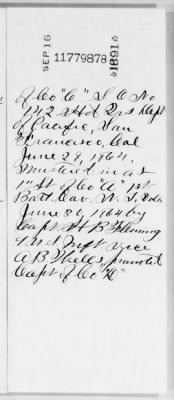 SEP 16
11779878
1891
of Co "C" S O No
142 Hd Qrs Dept
of Pacific, San
Francisco, Cal
June 29, 1864,
Mustered in as
1" Lt of Co "A" 1st
Batt. Cav. N. T. Vols
June 30, 1864 by
Capt H B Fleming
9 U S Inft. vice
A B Wells, promoted
Capt of Co "D"